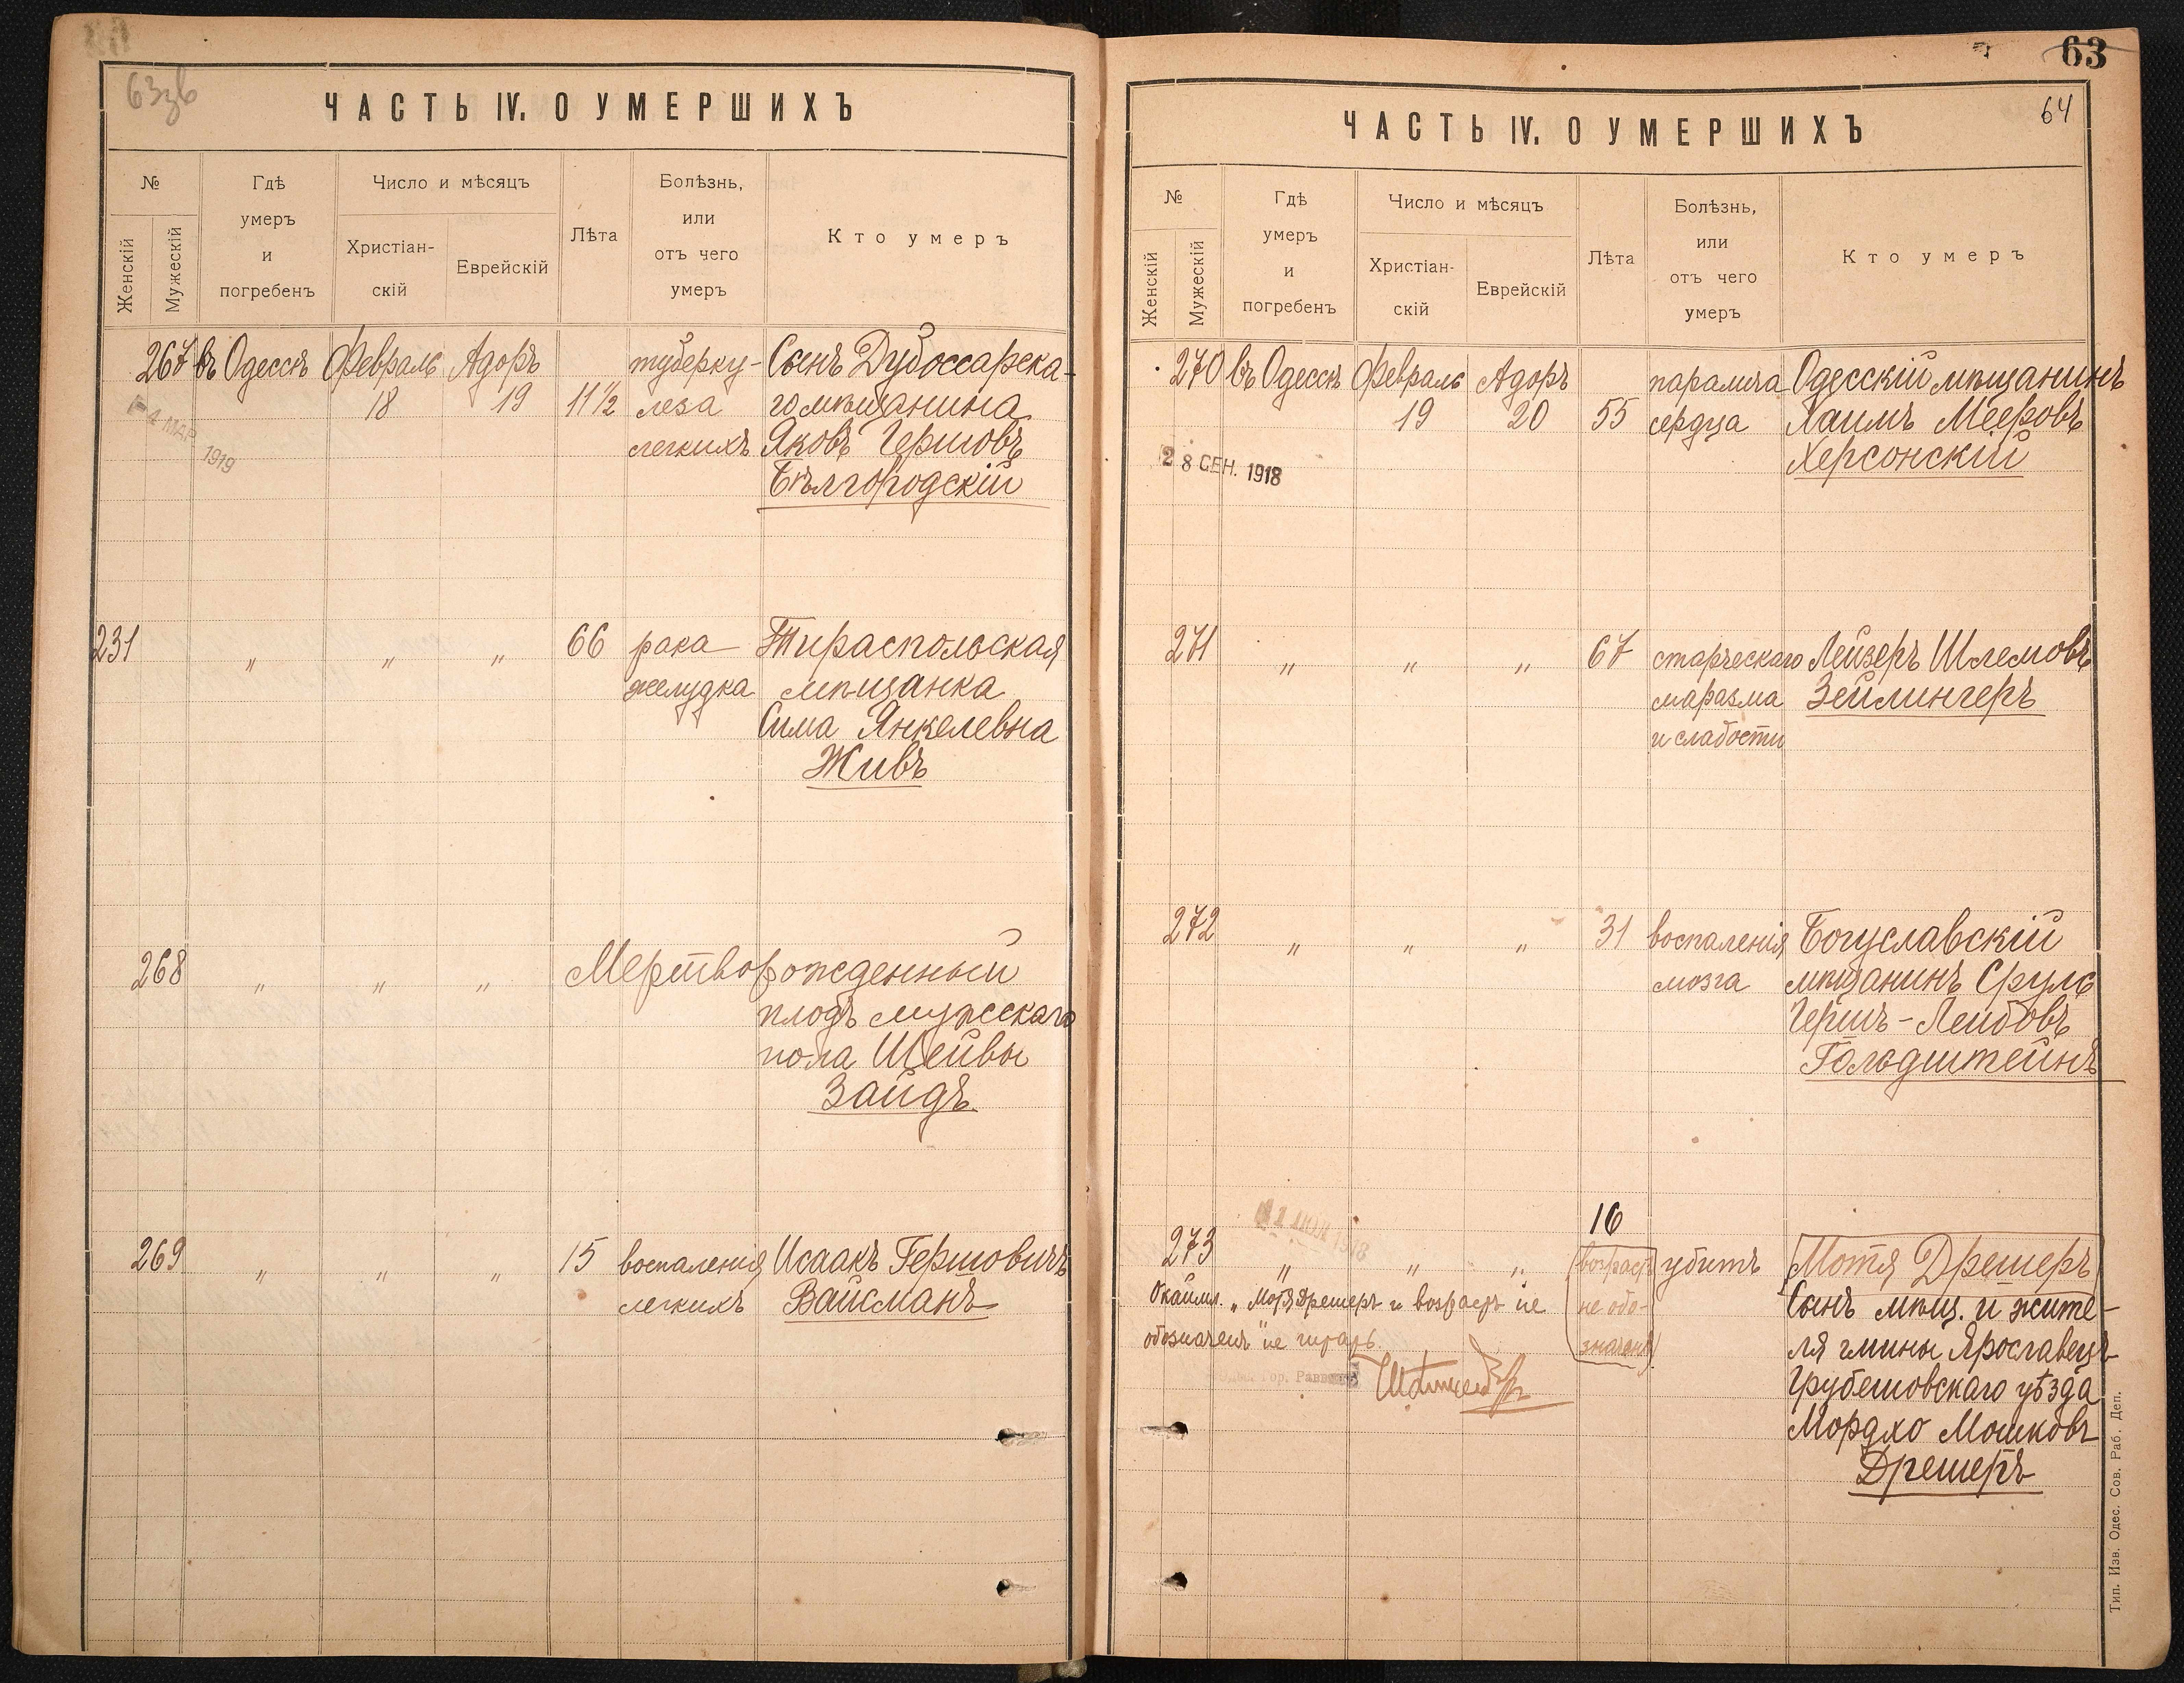 63зв
ЧАСТЬ IV. О УМЕРШИХЪ
№
Женскій
Мужескій
Гдѣ
умеръ
и
погребенъ
Число и мѣсяцъ
Христіан-
скій
Еврейскій
Лѣта
Болѣзнь,
или
отъ чего
умеръ
Кто умеръ
267 въ Одессѣ Февраль Адоръ туберку- Сынъ Дубоссарска-
18 19 11½ леза го мѣщанина
легкихъ Яковъ Гершовъ
Бѣлгородскій
4 МАР 1919
231 " " " 66 рака Тираспольская
желудка мѣщанка
Сима Янкелевна
Живъ
268 " " " Мертворожденный
плодъ мужескаго
пола Шейвы
Зайдъ
269 " " " 15 воспаленія Исаакъ Гершовичъ
легкихъ Вайсманъ
63
64
ЧАСТЬ IV. О УМЕРШИХЪ
№
Женскій
Мужескій
Гдѣ
умеръ
и
погребенъ
Число и мѣсяцъ
Христіан-
скій
Еврейскій
Лѣта
Болѣзнь,
или
отъ чего
умеръ
Кто умеръ
270 въ Одессѣ Февраль Адоръ паралича Одесскій мѣщанинъ
19 20 55 сердца Хаимъ Мееровъ
Херсонскій
28 СЕН. 1918
271 " " " 67 старческаго Лейзеръ Шлемовъ
маразма Зейлингеръ
и слабости
272 " " " 31 воспаленія Богуславскій
мозга мѣщанинъ Сруль
Гершъ-Лейбовъ
Гольдштейнъ
16
273 " " " возрастъ убитъ Мотя Дрешеръ
не обо-
значенъ
Окаймл. "Мотя Дрешеръ и возрастъ не
обозначенъ" не читать.
гор. Раввинъ
Сынъ мѣщ. и жите-
ля гмины Ярославецъ
Грубешовскаго уѣзда
Мордко Мошковъ
Дрешеръ
Тип. Изв. Одес. Сов. Раб. Деп.